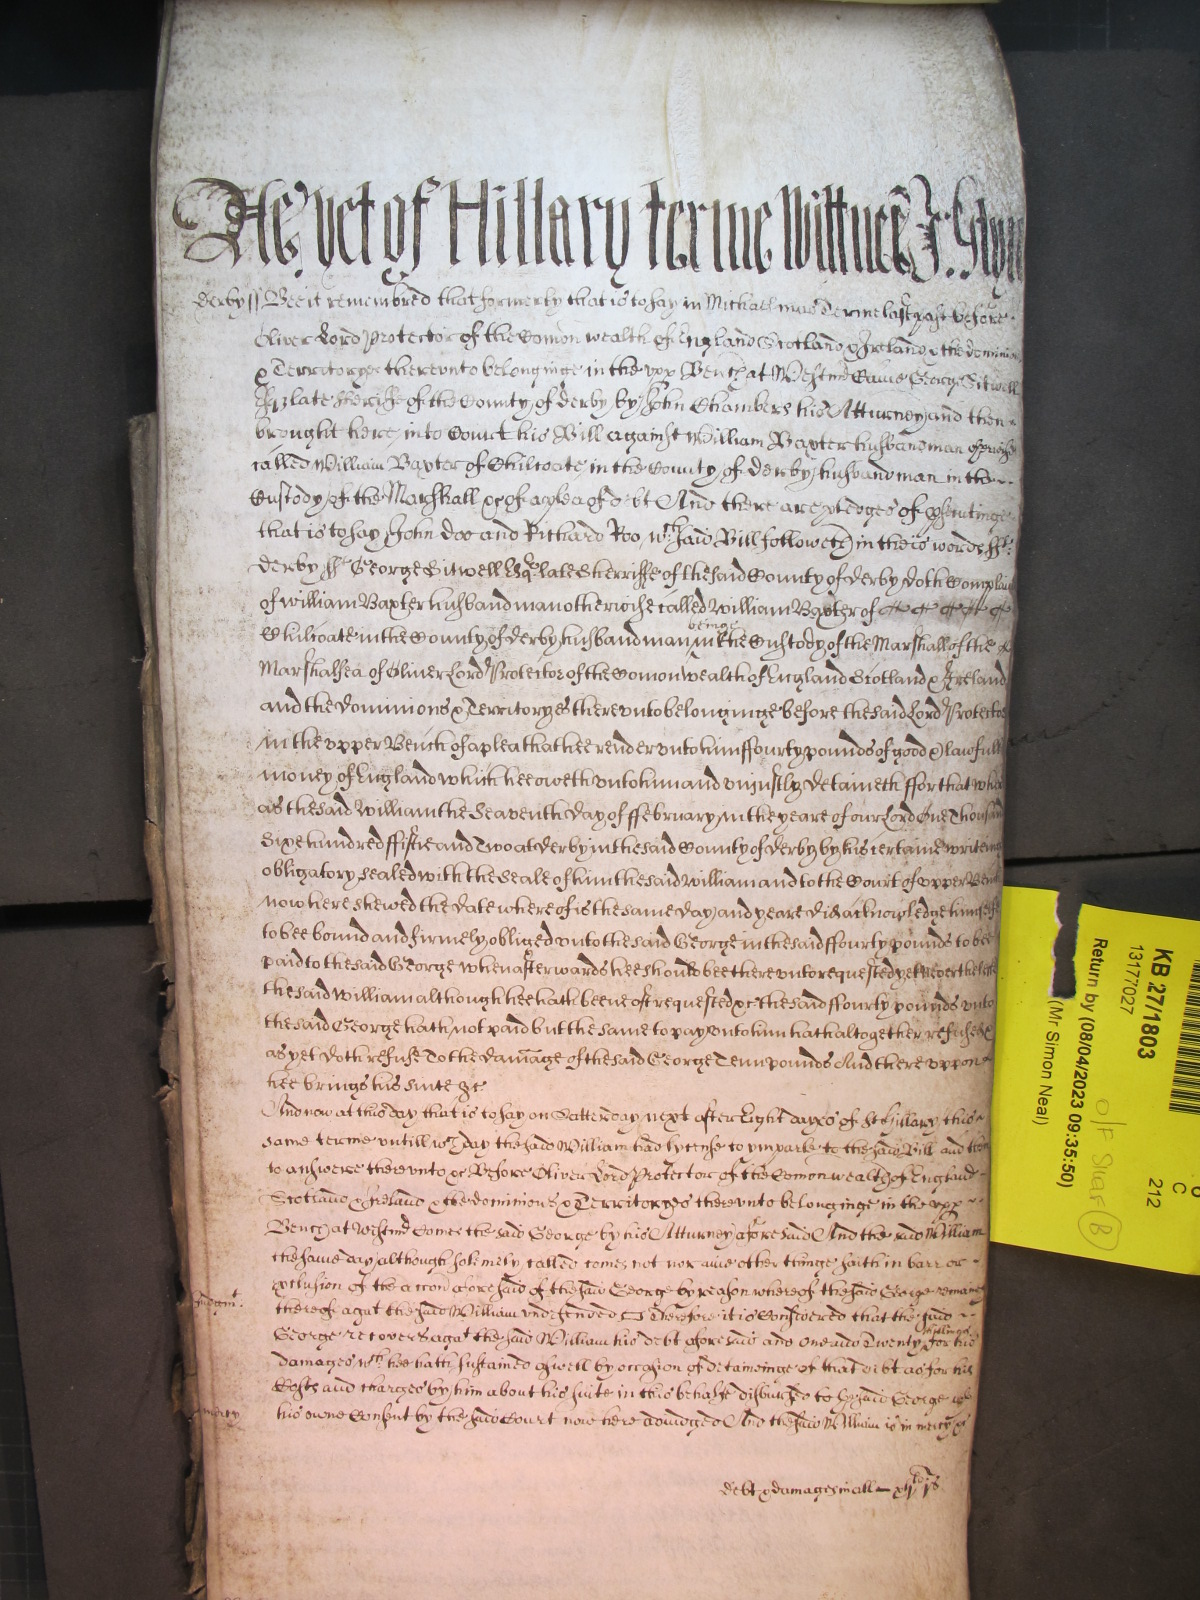 As yet of Hillary terme Wittnes J. Glyn
derby ss Bee it remembred that formerly that is to say in Michaelmas Terme last past before
Oliver Lord Protector of the Comon wealth of England Scotland & Ireland & the dominions
& Territoryes therevnto belonginge in the vpp Bench at Westmr Came George Sitwell
Esqr late Sherriffe of the County of derby by John Chambers his Atturney and then
brought here into Court his Bill against William Baxter husbandman otherwise
called William Baxter of Chilcoate in the County of derby husbandman in the
Custody of the Marshall &c of a plea of debt And there are pledges of prsecutinge
that is to say John doo and Richard Roo wch said Bill followeth in theis words ss
derby ss George Sitwell Esqr late Sherriffe of the said County of derby doth Complaine
of William Baxter husbandman otherwise called William Baxter of
Chilcoate in the County of derby husbandman beinge in the Custody of the Marshall of the
Marshalsea of Oliver Lord Protector of the Comonwealth of England Scotland & Ireland
and the dominions & Territoryes therevnto belonginge before the said Lord Protector
in the vpper Bench of a plea that hee render vnto him ffourty pounds of good & lawfull
money of England which hee oweth vnto him and vniustly detaineth ffor that where
as the said William the Seaventh day of ffebruary in the yeare of our Lord One Thousand
Sixe hundred ffiftie and Two at derby in the said County of derby by his certaine writeing
obligatory sealed with the Seale of him the said William and to the Court of vpper Bench
now here shewed the date whereof is the same day and yeare did acknowledge himselfe
to bee bound and firmely obliged vnto the said George in the said ffourty pounds to bee
paid to the said George when afterwards hee should bee therevnto requested yet Neverthelesse
the said William although hee hath beene oft requested &c the said ffourty pounds vnto
the said George hath not paid but the same to pay vnto him hath altogether refused &
as yet doth refuse To the damage of the said George Tenn pounds And therevppon
hee brings his suite &c
And now at this day that is to say on Satterday next after Eight dayes of St Hillary this
same terme vntill wch day the said William had lycense to imparle to the said Bill and then
to answere therevnto &c Before Oliver Lord Protector of the Comonwealth of England
Scotland & Ireland & the dominions & Territoryes therevnto belonginge in the vpp
Bench at Westmr Comes the said George by his Atturney aforesaid And the said William
the same day although solemnely called comes not nor anie other thinge saith in barr or
p'clusion of the accon aforesaid of the said George by reason whereof the said George remaines
Judgmt
thereof agat the said William vndefended Therefore it is Considered that the said
George recover agat the said William his debt aforesaid and one and Twenty shillings for his
damages wch hee hath sustained aswell by occasion of detaineinge of that debt as for his
Costs and charges by him about his suite in this behalfe disbursed to the said George with
mercy
his owne Consent by the said Court now here adiudged And the said William is in mercy &c
debt & damages in all xljli js
KB 27/1803
13177027
Return by (08/04/2023 09:35:50)
(Mr Simon Neal)
O/F Shelf B
C
212